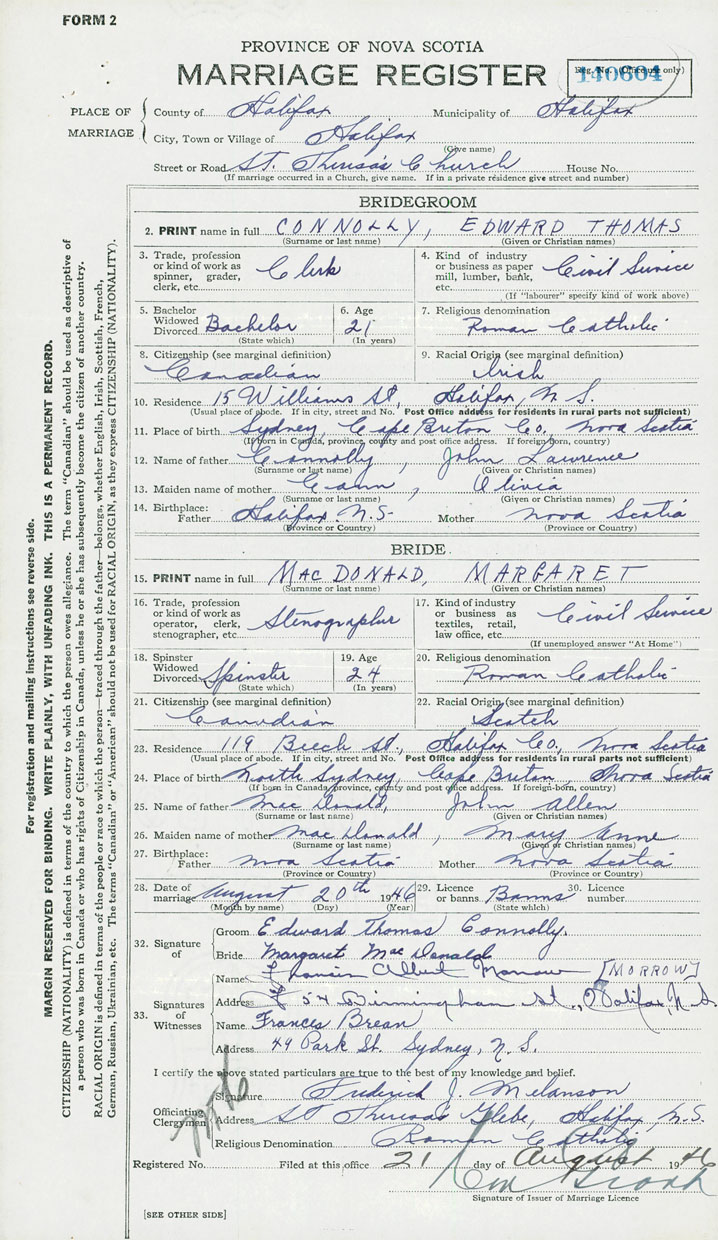 FORM 2
PROVINCE OF NOVA SCOTIA
MARRIAGE REGISTER
Reg. No. (Office use only)
140604
PLACE OF MARRIAGE
County of Halifax Municipality of Halifax
City, Town or Village of Halifax
(Give name)
Street or Road St. Theresa's Church House No.
(If marriage occurred in a Church, give name. If in a private residence give street and number)
BRIDEGROOM
2. PRINT name in full CONNOLLY, EDWARD THOMAS
(Surname or last name) (Given or Christian names)
3. Trade, profession or kind of work as spinner, grader, clerk, etc. Clerk
4. Kind of industry or business as paper mill, lumber, bank, etc. Civil Service
(If "labourer" specify kind of work above)
5. Bachelor Widowed Divorced Bachelor
(State which)
6. Age 21
(In years)
7. Religious denomination
Roman Catholic
8. Citizenship (see marginal definition)
Canadian
9. Racial Origin (see marginal definition)
Irish
10. Residence 15 Williams St, Halifax, N.S.
(Usual place of abode. If in city, street and No. Post Office address for residents in rural parts not sufficient)
11. Place of birth Sydney, Cape Breton Co, Nova Scotia
(If born in Canada, province, county and post office address. If foreign-born, country)
12. Name of father Connolly, John Lawrence
(Surname or last name) (Given or Christian names)
13. Maiden name of mother Cann, Olivia
(Surname or last name) (Given or Christian names)
14. Birthplace: Father Halifax N.S. Mother Nova Scotia
(Province or Country) (Province or Country)
BRIDE
15. PRINT name in full MACDONALD, MARGARET
(Surname or last name) (Given or Christian names)
16. Trade, profession or kind of work as operator, clerk, stenographer, etc. Stenographer
17. Kind of industry or business as textiles, retail, law office, etc. Civil Service
(If unemployed answer "At Home")
18. Spinster Widowed Divorced Spinster
(State which)
19. Age 24
(In years)
20. Religious denomination
Roman Catholic
21. Citizenship (see marginal definition)
Canadian
22. Racial Origin (see marginal definition)
Scotch
23. Residence 119 Beech St., Halifax Co, Nova Scotia
(Usual place of abode. If in city, street and No. Post Office address for residents in rural parts not sufficient)
24. Place of birth North Sydney, Cape Breton, Nova Scotia
(If born in Canada, province, county and post office address. If foreign-born, country)
25. Name of father MacDonald, John Allen
(Surname or last name) (Given or Christian names)
26. Maiden name of mother MacDonald, Mary Anne
(Surname or last name) (Given or Christian names)
27. Birthplace: Father Nova Scotia Mother Nova Scotia
(Province or Country) (Province or Country)
28. Date of marriage August 20th 1946
(Month by name) (Day) (Year)
29. Licence or banns Banns
(State which)
30. Licence number
32. Signature of
Groom Edward Thomas Connolly.
Bride Margaret MacDonald
33. Signatures of Witnesses
Name Francis Albert Morrow [MORROW]
Address 54 Birmingham St., Halifax, N.S.
Name Frances Brean
Address 49 Park St. Sydney, N.S.
I certify the above stated particulars are true to the best of my knowledge and belief.
Officiating Clergyman
Signature Frederick J. Melanson
Address St Theresa's Glebe, Halifax, N.S.
Religious Denomination Roman Catholic
Registered No. Filed at this office 21 day of August 1946
Signature of Issuer of Marriage Licence
[SEE OTHER SIDE]
For registration and mailing instructions see reverse side.
MARGIN RESERVED FOR BINDING. WRITE PLAINLY, WITH UNFADING INK. THIS IS A PERMANENT RECORD.
CITIZENSHIP (NATIONALITY) is defined in terms of the country to which the person owes allegiance. The term "Canadian" should be used as descriptive of
a person who was born in Canada or who has rights of Citizenship in Canada, unless he or she has subsequently become the citizen of another country.
RACIAL ORIGIN is defined in terms of the people or race to which the person—traced through the father—belongs, whether English, Irish, Scottish, French,
German, Russian, Ukrainian, etc. The terms "Canadian" or "American" should not be used for RACIAL ORIGIN, as they express CITIZENSHIP (NATIONALITY).